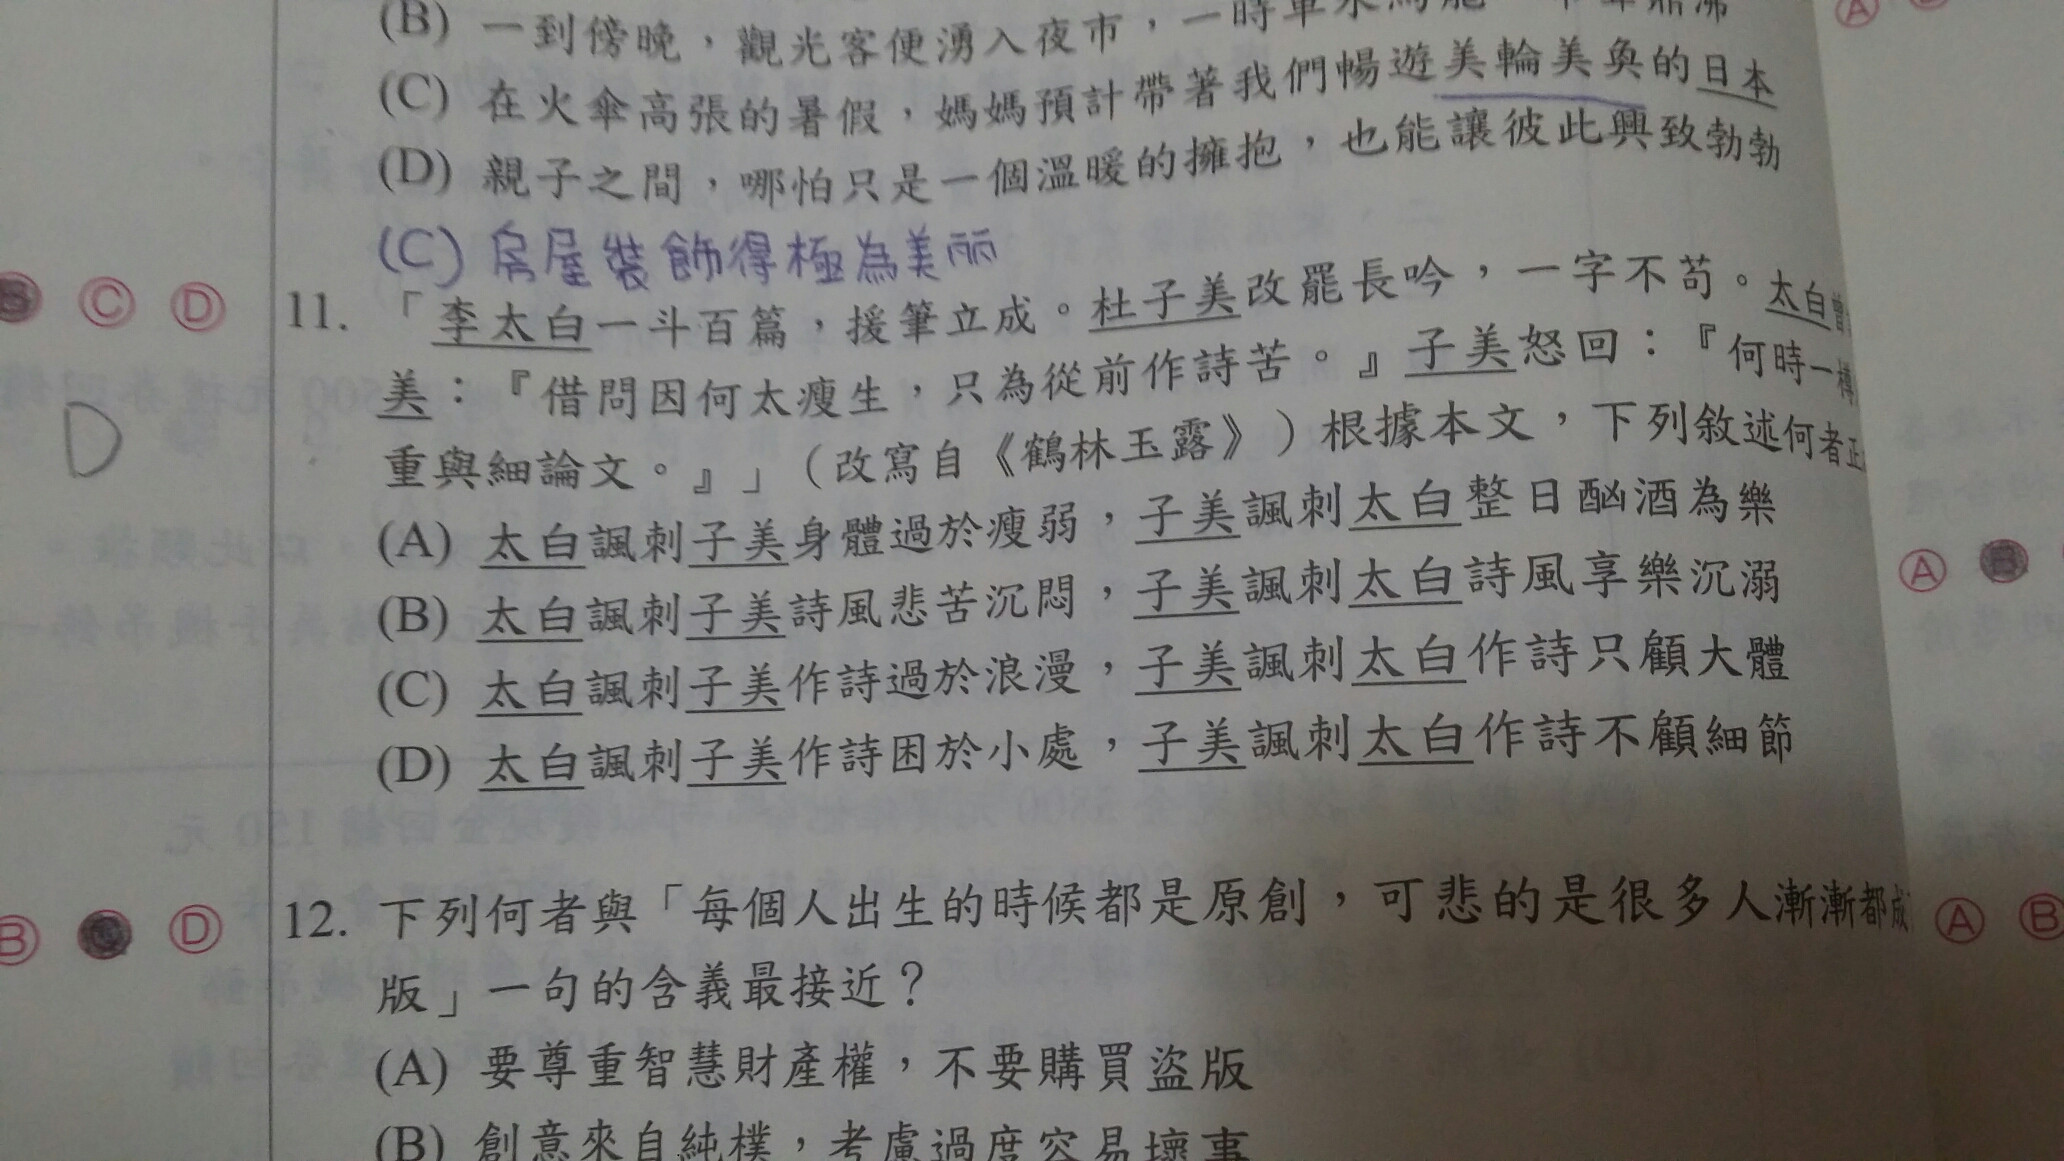 (B) 一到傍晚，觀光客便湧入夜市，一時車水馬龍
(C) 在火傘高張的暑假，媽媽預計帶著我們暢遊美輪美奐的日本
(D) 親子之間，哪怕只是一個溫暖的擁抱，也能讓彼此興致勃勃
(C) 房屋裝飾得極為美丽
Ⓒ Ⓓ
11. 「李太白一斗百篇，援筆立成。杜子美改罷長吟，一字不苟。太白
美：『借問因何太瘦生，只為從前作詩苦。』子美怒回：『何時一樽
重與細論文。』」（改寫自《鶴林玉露》）根據本文，下列敘述何者正
D
(A) 太白諷刺子美身體過於瘦弱，子美諷刺太白整日酗酒為樂
(B) 太白諷刺子美詩風悲苦沉悶，子美諷刺太白詩風享樂沉溺
(C) 太白諷刺子美作詩過於浪漫，子美諷刺太白作詩只顧大體
(D) 太白諷刺子美作詩困於小處，子美諷刺太白作詩不顧細節
Ⓐ Ⓑ
Ⓑ Ⓓ
12. 下列何者與「每個人出生的時候都是原創，可悲的是很多人漸漸都成
版」一句的含義最接近？
Ⓐ Ⓑ
(A) 要尊重智慧財產權，不要購買盜版
(B) 創意來自純樸，考慮過度容易壞事